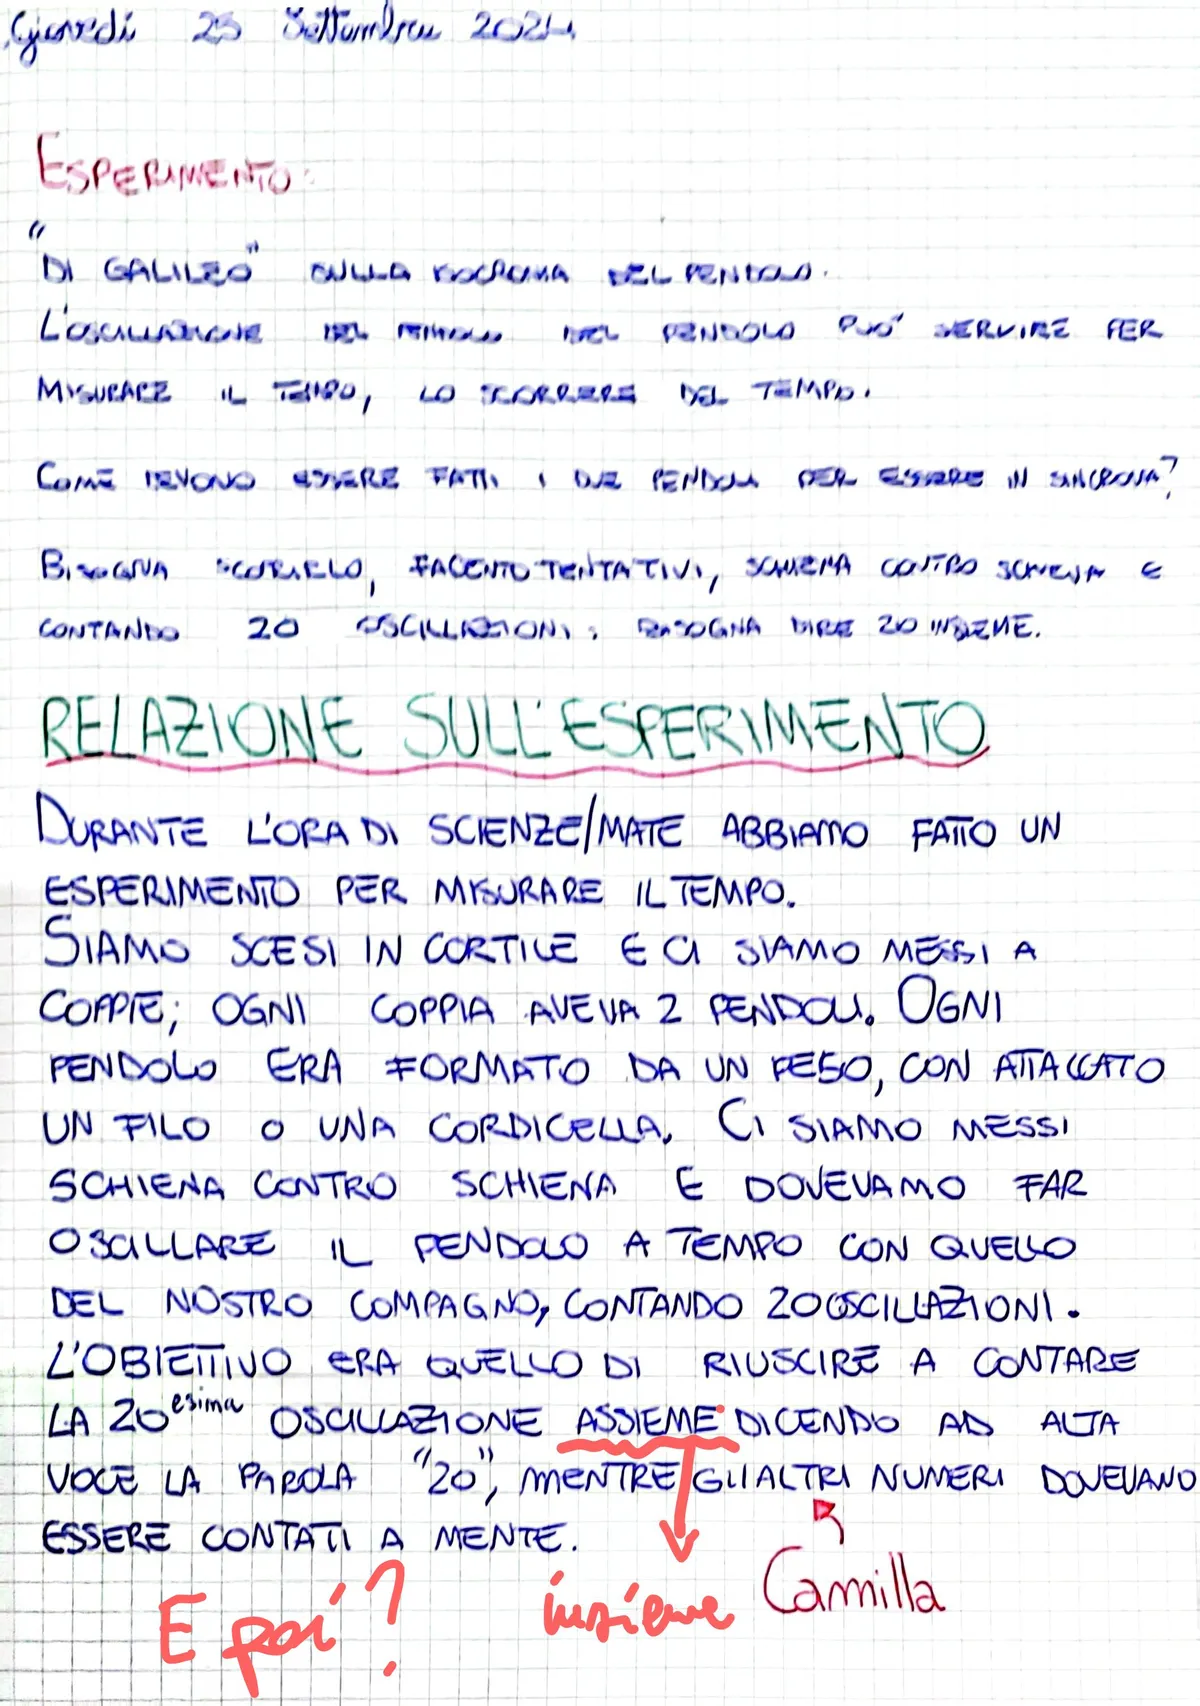 Giovedì 25 Settembre 2024
ESPERIMENTO:
"
DI GALILEO" SULLA ISOCRONIA DEL PENDOLO.
L'OSCILLAZIONE DEL DEL PENDOLO PUO' SERVIRE PER
MISURARE IL TEMPO, LO SCORRERE DEL TEMPO.
COME DEVONO ESSERE FATTI I DUE PENDOLI PER ESSERE IN SINCRONIA?
BISOGNA SCOPRIRLO, FACENTO TENTATIVI, SCHIENA CONTRO SCHIENA E
CONTANDO 20 OSCILLAZIONI: BISOGNA DIRE 20 INSIEME.
RELAZIONE SULL'ESPERIMENTO
DURANTE L'ORA DI SCIENZE/MATE ABBIAMO FATTO UN
ESPERIMENTO PER MISURARE IL TEMPO.
SIAMO SCESI IN CORTILE E CI SIAMO MESSI A
COPPIE; OGNI COPPIA AVEVA 2 PENDOLI. OGNI
PENDOLO ERA FORMATO DA UN PESO, CON ATTACCATO
UN FILO O UNA CORDICELLA. CI SIAMO MESSI
SCHIENA CONTRO SCHIENA E DOVEVAMO FAR
OSCILLARE IL PENDOLO A TEMPO CON QUELLO
DEL NOSTRO COMPAGNO, CONTANDO 20 OSCILLAZIONI.
L'OBIETTIVO ERA QUELLO DI RIUSCIRE A CONTARE
LA 20esima OSCILLAZIONE ASSIEME DICENDO AD ALTA
VOCE LA PAROLA "20", MENTRE GLI ALTRI NUMERI DOVEVANO
ESSERE CONTATI A MENTE.
E poi? insieme Camilla